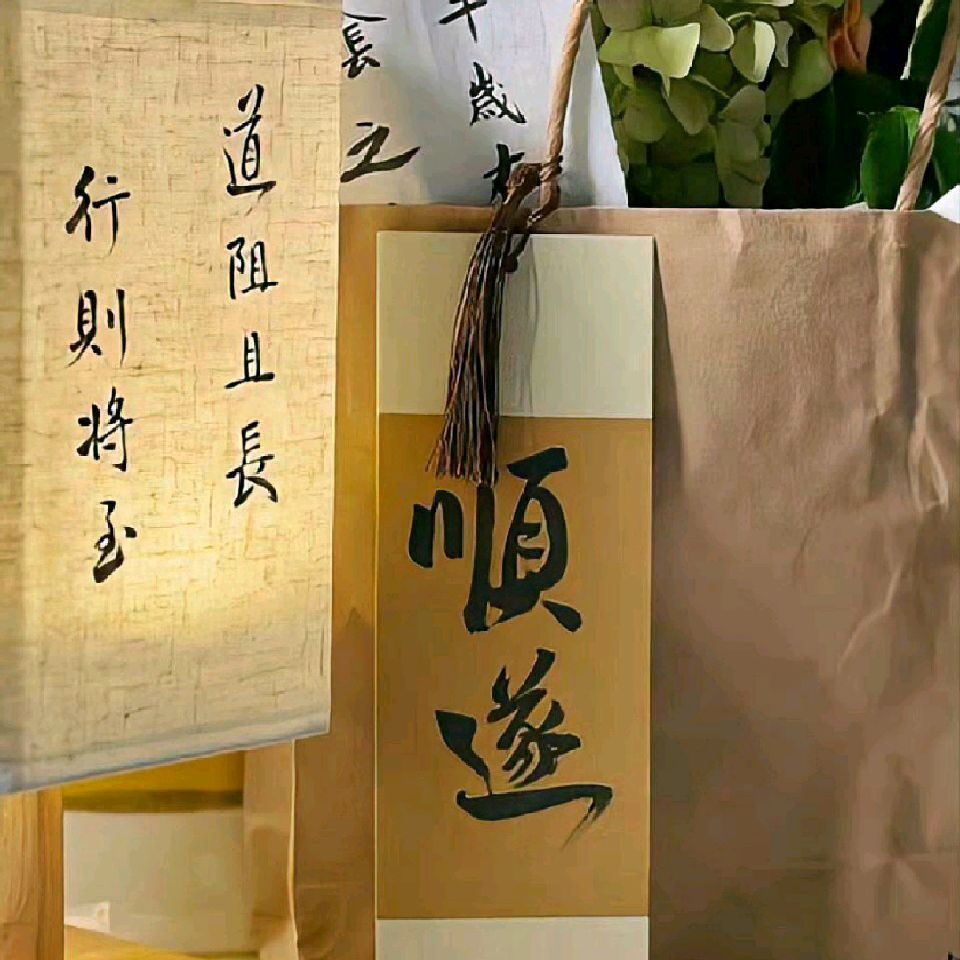 道阻且長
行則將至
歲
長之
順遂